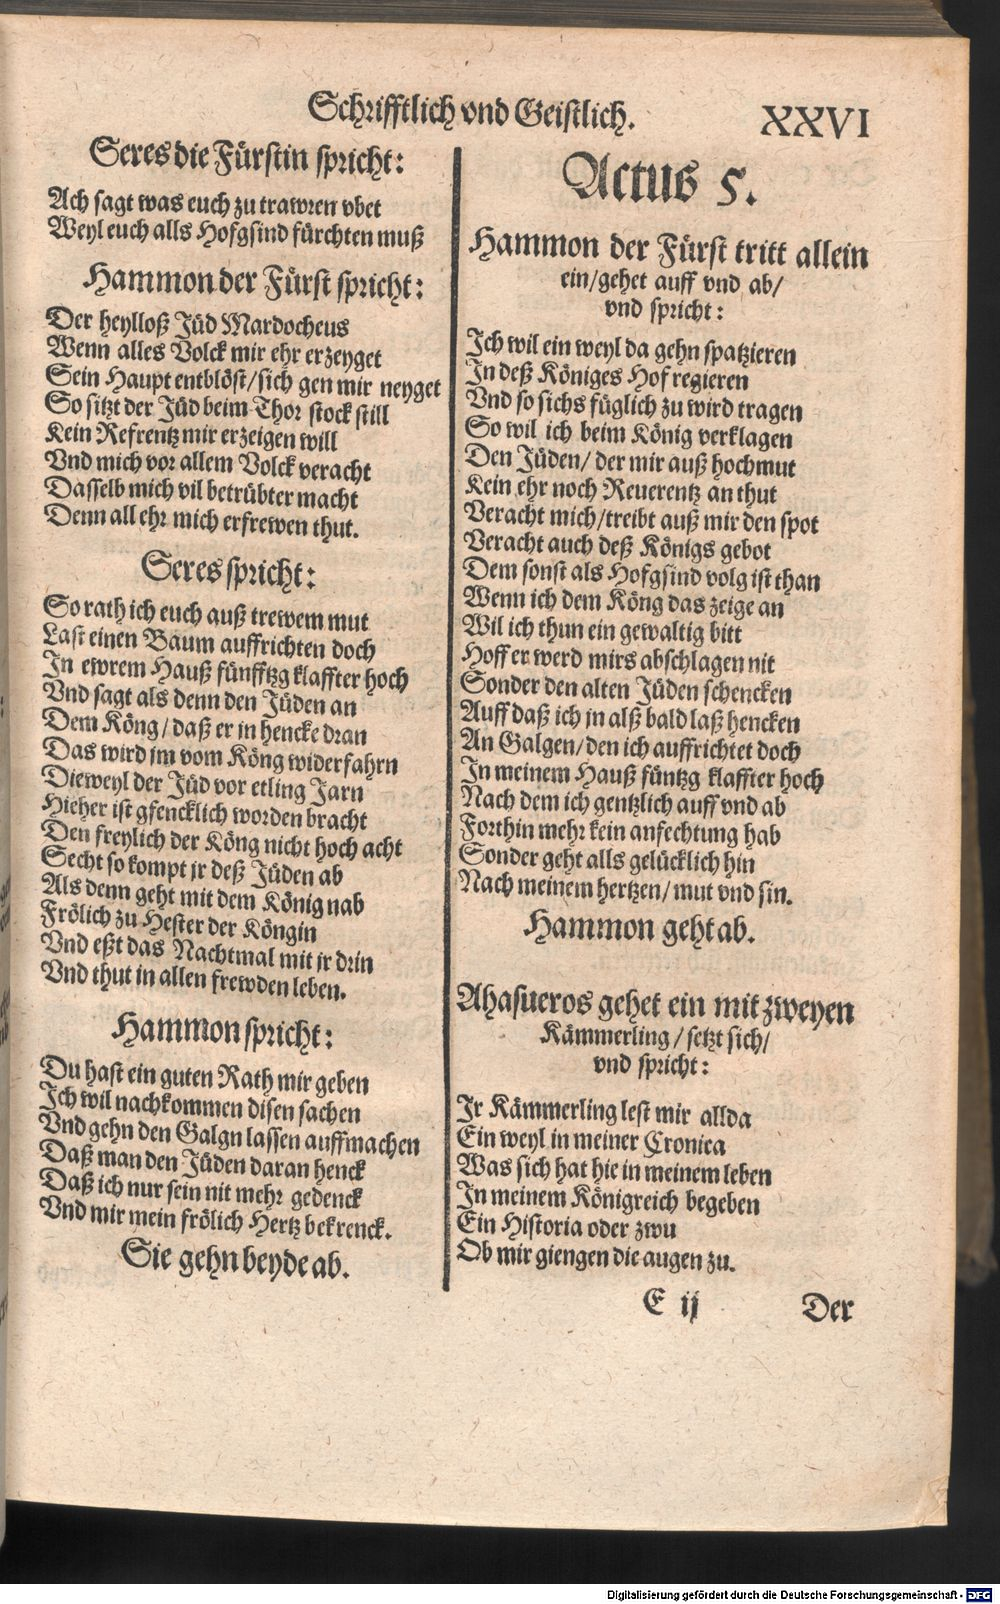 Schrifftlich vnd Geistlich.
XXVI
Seres die Fürstin spricht:
Ach sagt was euch zu trawren vbet
Weyl euch alls Hofgsind fürchten muß
Hammon der Fürst spricht:
Der heylloß Jüd Mardocheus
Wenn alles Volck mir ehr erzeyget
Sein Haupt entblöst/sich gen mir neyget
So sitzt der Jüd beim Thor stock still
Kein Refrentz mir erzeigen will
Vnd mich vor allem Volck veracht
Dasselb mich vil betrübter macht
Denn all ehr mich erfrewen thut.
Seres spricht:
So rath ich euch auß trewem mut
Last einen Baum auffrichten doch
In ewrem Hauß fünfftzg klaffter hoch
Vnd sagt als denn den Jüden an
Dem Köng/daß er in hencke dran
Das wird jm vom Köng widerfahrn
Dieweyl der Jüd vor etling Jarn
Hieher ist gfencklich worden bracht
Den freylich der Köng nicht hoch acht
Secht so kompt jr deß Jüden ab
Als denn geht mit dem König nab
Frölich zu Hester der Köngin
Vnd eßt das Nachtmal mit jr drin
Vnd thut in allen frewden leben.
Hammon spricht:
Du hast ein guten Rath mir geben
Ich wil nachkommen disen sachen
Vnd gehn den Galgn lassen auffmachen
Daß man den Jüden daran henck
Daß ich nur sein nit mehr gedenck
Vnd mir mein frölich Hertz bekrenck.
Sie gehn beyde ab.
Actus 5.
Hammon der Fürst tritt allein
ein/gehet auff vnd ab/
vnd spricht:
Ich wil ein weyl da gehn spatzieren
In deß Königes Hof regieren
Vnd so sichs füglich zu wird tragen
So wil ich beim König verklagen
Den Jüden/ der mir auß hochmut
Kein ehr noch Reuerentz an thut
Veracht mich/treibt auß mir den spot
Veracht auch deß Königs gebot
Dem sonst als Hofgsind volg ist than
Wenn ich dem Köng das zeige an
Wil ich thun ein gewaltig bitt
Hoff er werd mirs abschlagen nit
Sonder den alten Jüden schencken
Auff daß ich jn alß bald laß hencken
An Galgen/den ich auffrichtet doch
In meinem Hauß füntzg klaffter hoch
Nach dem ich gentzlich auff vnd ab
Forthin mehr kein anfechtung hab
Sonder geht alls gelücklich hin
Nach meinem hertzen/mut vnd sin.
Hammon geht ab.
Ahasueros gehet ein mit zweyen
Kämmerling/setzt sich/
vnd spricht:
Ir Kämmerling lest mir allda
Ein weyl in meiner Cronica
Was sich hat hie in meinem leben
In meinem Königreich begeben
Ein Historia oder zwu
Ob mir giengen die augen zu.
E ij
Der
Digitalisierung gefördert durch die Deutsche Forschungsgemeinschaft - DFG